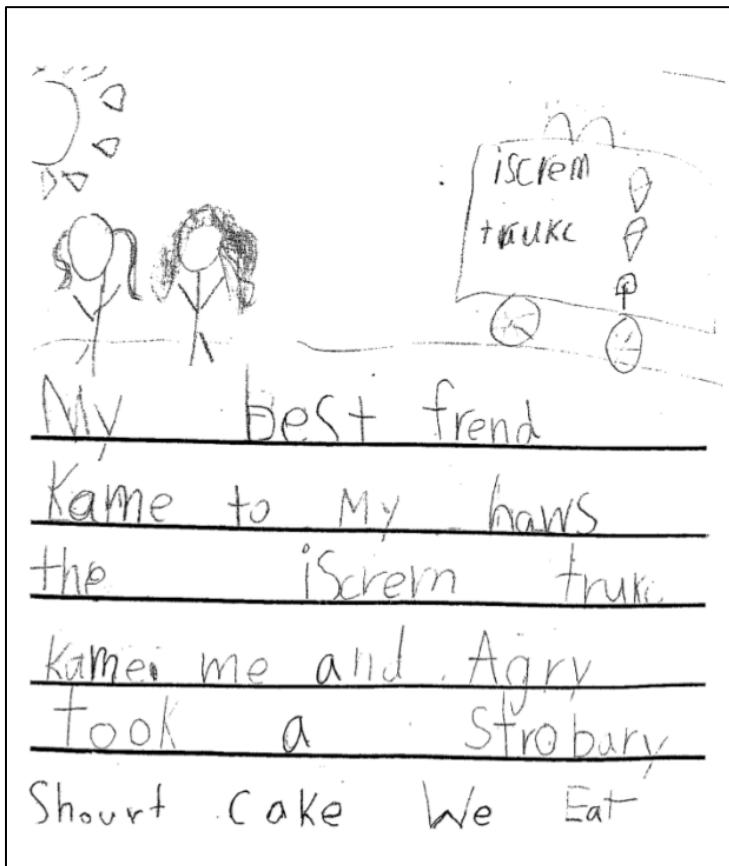 iscrem
trukc
My best frend
Kame to My haws
the iScrem trukc
kamei me and Agry
took a Strobary
Shourt cake We Eat